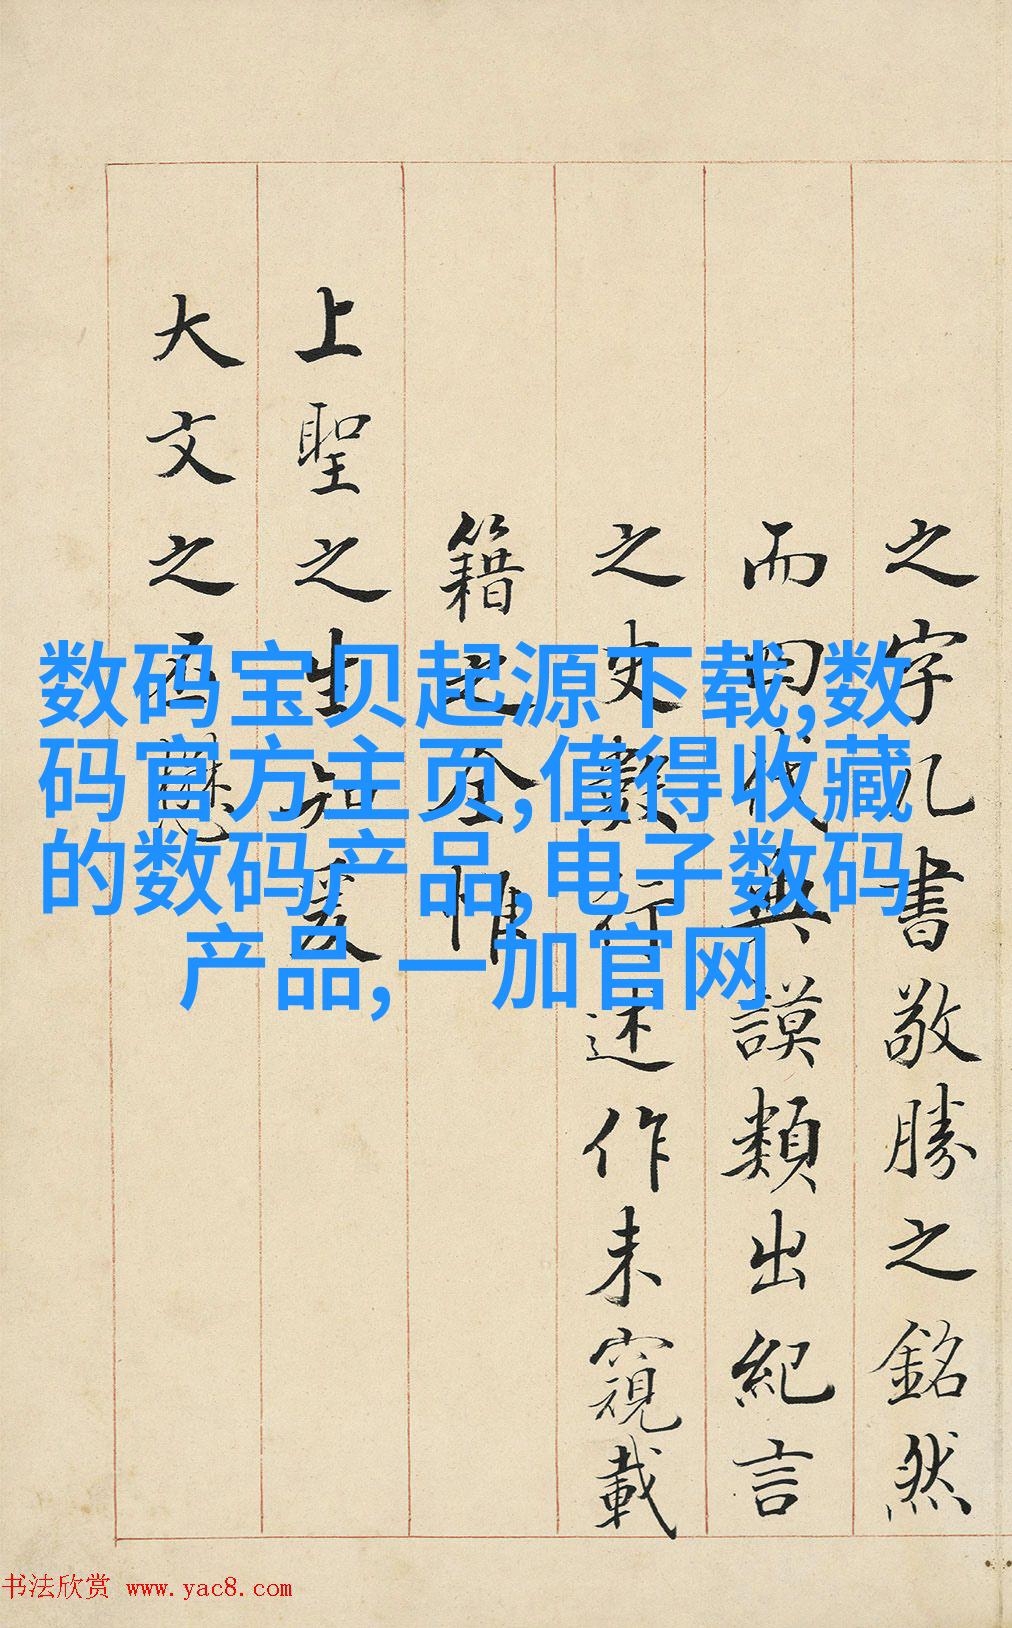 之字几書敬勝之銘然
而四代典謨類出紀言
之史數行述作未窺載
籍之全惟
上聖之生知爰
大文之
数码宝贝起源下载,数
码官方主页,值得收藏
的数码产品,电子数码
产品,一加官网
书法欣赏 www.yac8.com